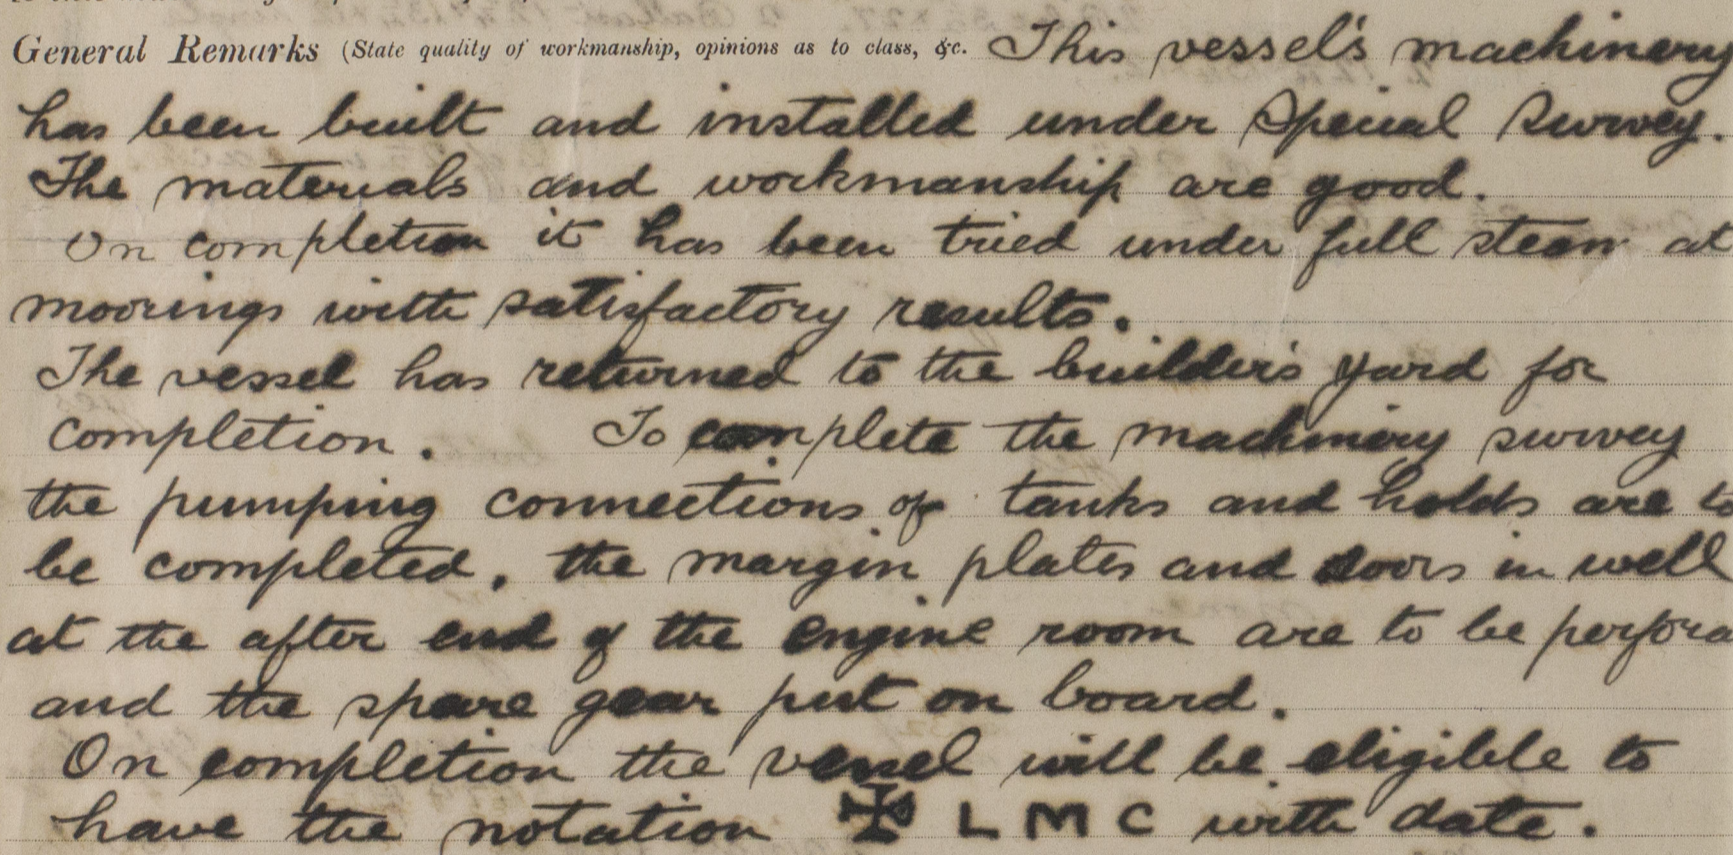 General Remarks (State quality of workmanship, opinions as to class, &c. This vessel's machinery
has been built and installed under Special Survey.
The materials and workmanship are good.
On completion it has been tried under full steam at
moorings with satisfactory results.
The vessel has returned to the builder's yard for
completion. To complete the machinery survey
the pumping connections of tanks and holds are to
be completed, the margin plates and doors in well
at the after end of the engine room are to be perfora
and the spare gear put on board.
On completion the vessel will be eligible to
have the notation ✠ L M C with date.